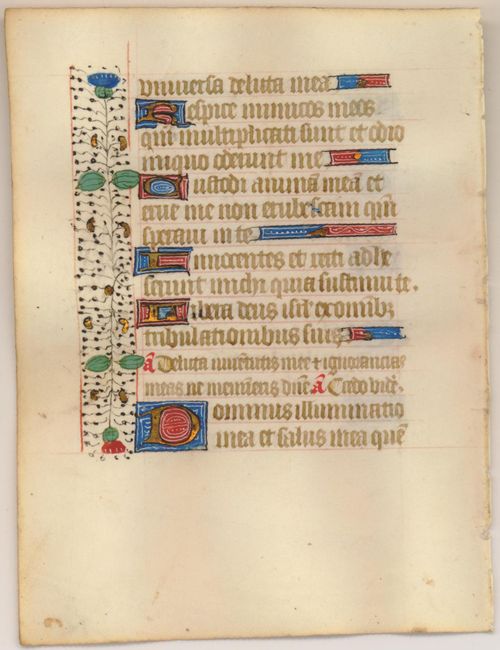 vniuersa delicta mea
Respice inimicos meos
qm̄ multiplicati sunt et odio
iniquo oderunt me
Custodi animā meā et
erue me non erubescam qm̄
speraui in te
Innocentes et recti adhe
serunt michi quia sustinui te.
Libera deus isrl̄ ex omnibȝ
tribulationibus suis
A Delicta iuuentutis mee ⁊ ignorancias
meas ne memineris dn̄e A Credo vide.
Dominus illuminatio
mea et salus mea quē